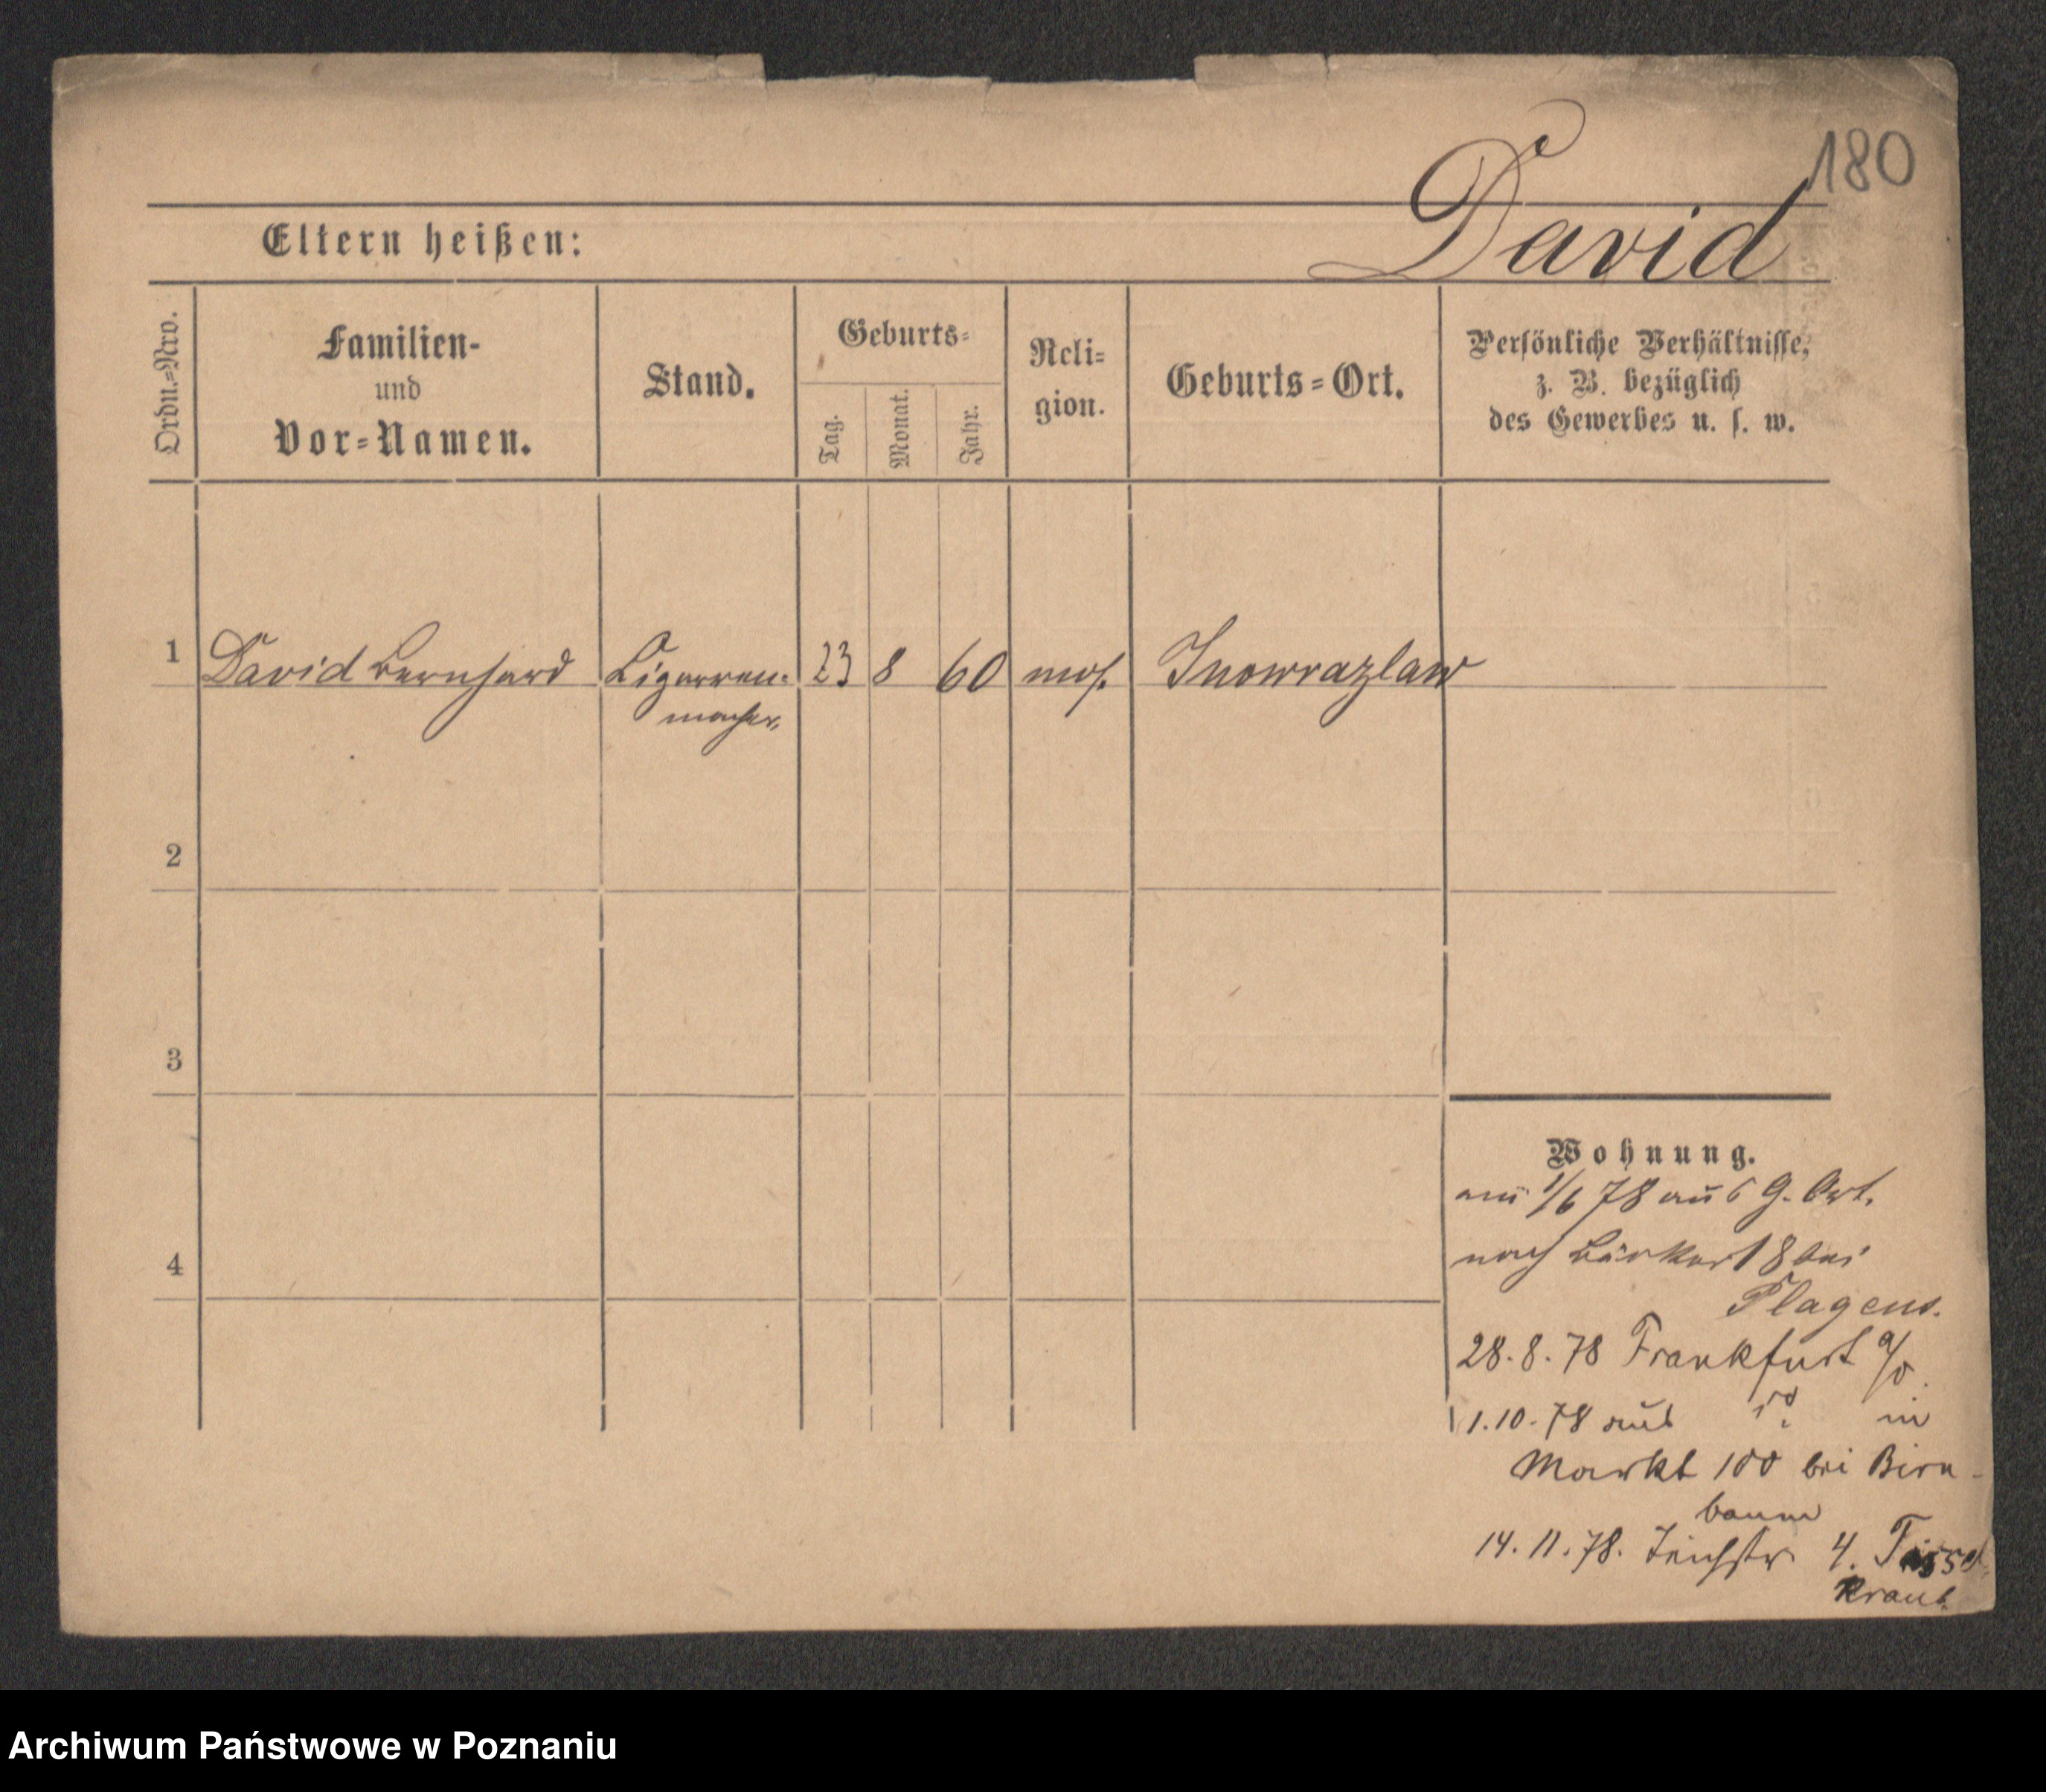 180
David
Eltern heißen:
Ordn.=Nro.
Familien-
und
Vor=Namen.
Stand.
Geburts=
Tag.
Monat.
Jahr.
Reli=
gion.
Geburts=Ort.
Persönliche Verhältnisse,
z. B. bezüglich
des Gewerbes u. s. w.
1 David Bernhard Cigarren= 23 8 60 mos. Inowrazlaw
macher
2
3
4
Wohnung.
am 1/6 78 aus G. Ort.
nach 8 bei
Plagens.
28.8.78 Frankfurt a/o.
1.10.78 aus id. in
Markt 100 bei Birn-
baum
14.11.78. Teichstr 4.
Kraut
Archiwum Państwowe w Poznaniu